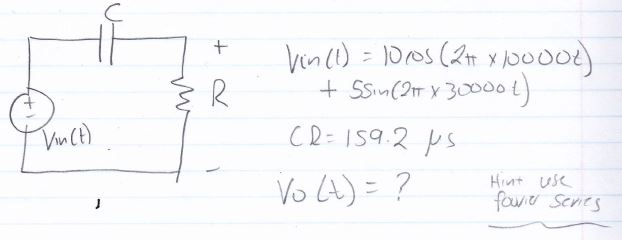 C
+
R
-
+
-
Vin(t)
Vin(t) = 10cos(2π x 10000t)
+ 5sin(2π x 30000t)
CR = 159.2 μs
Vo(t) = ?
Hint use
fourier series